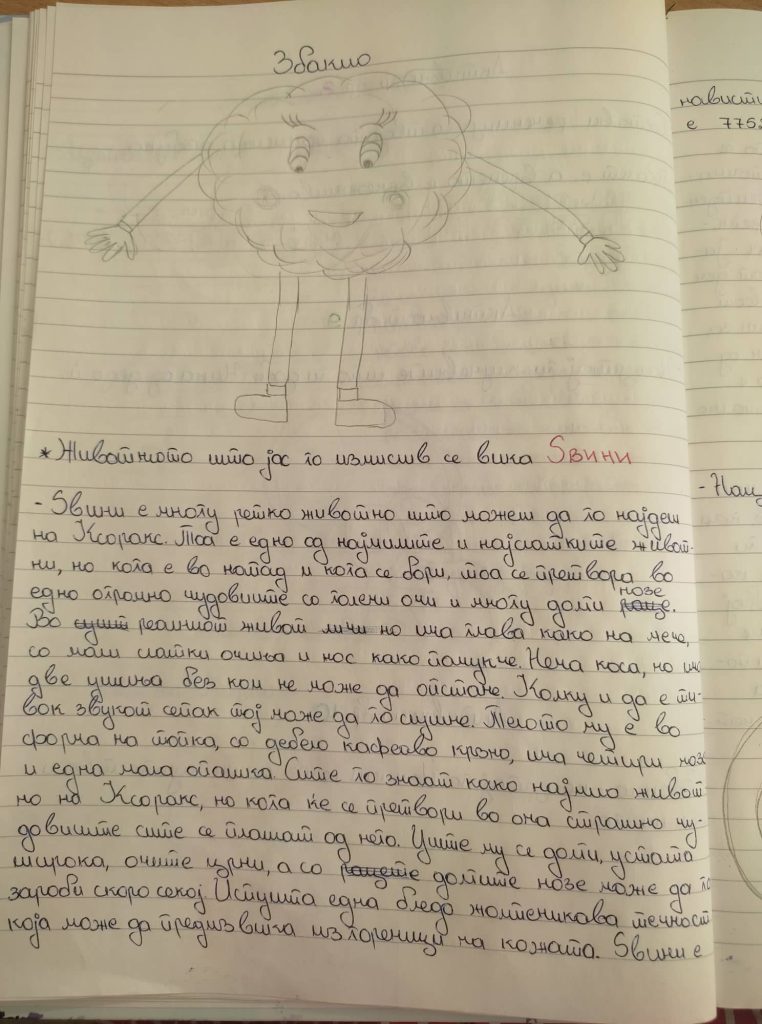 Збакио
* Животното што јас го измислив се вика Ѕвини
- Ѕвини е многу ретко животно што можеш да го најдеш
на Ксоракс. Тоа е едно од најмилите и најслатките живот-
ни, но кога е во напад и кога се бори, тоа се претвора во
едно огромно чудовиште со големи очи и многу долги нозе.
Во реалниот живот но има глава како на мече,
со мали слатки очиња и нос како памукче. Нема коса, но има
две ушиња без кои не може да опстане. Колку и да е ти-
вок звукот сепак тој може да го слушне. Телото му е во
форма на топка, со дебело кафеаво крзно, има четири нозе
и една мала опашка. Сите го знаат како најмило живот
но на Ксоракс, но кога ќе се претвори во она страшно чу-
довиште сите се плашат од него. Ушите му се долги, устата
широка, очите црни, а со долгите нозе може да го
зароби скоро секој. Испушта една бледо жолтеникава течност
која може да предизвика изгореници на кожата. Ѕвини е
навист
е 775